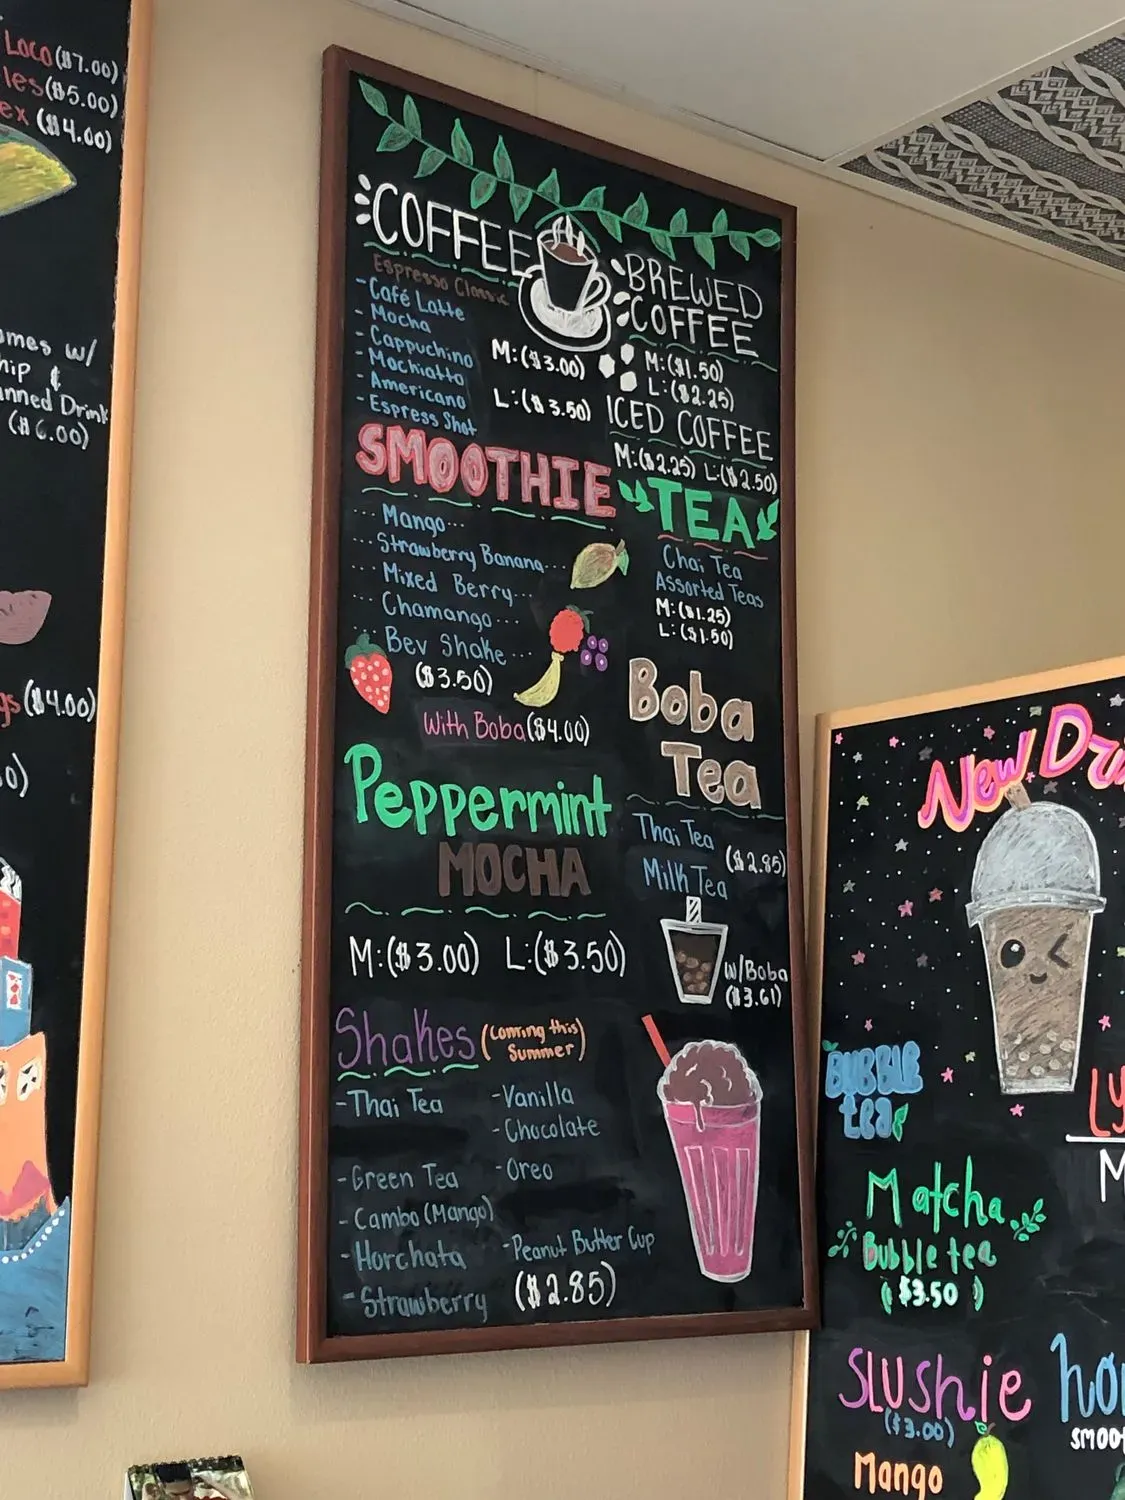 Loco ($7.00)
les ($5.00)
ex ($4.00)
omes w/
hip &
nned Drink
($6.00)
gs ($4.00)
0)
COFFEE
Espresso Classic
- Café Latte
- Mocha
- Cappuchino
- Mochiatto
- Americano
- Espress Shot
M:($3.00)
L:($3.50)
BREWED
COFFEE
M:($1.50)
L:($2.25)
ICED COFFEE
M:($2.25) L:($2.50)
SMOOTHIE
... Mango...
... Strawberry Banana...
... Mixed Berry...
... Chamango...
... Bev Shake...
($3.50)
With Boba ($4.00)
TEA
Chai Tea
Assorted Teas
M:($1.25)
L:($1.50)
Boba
Tea
Thai Tea
Milk Tea
($2.85)
w/Boba
($3.61)
Peppermint
MOCHA
M:($3.00) L:($3.50)
Shakes (coming this
Summer)
- Thai Tea
- Green Tea
- Cambo (Mango)
- Horchata
- Strawberry
- Vanilla
- Chocolate
- Oreo
- Peanut Butter Cup
($2.85)
New Dr
BUBBLE
tea
Ly
M
Matcha
Bubble tea
($3.50)
SLUShie
($3.00)
Mango
hon
SMOO